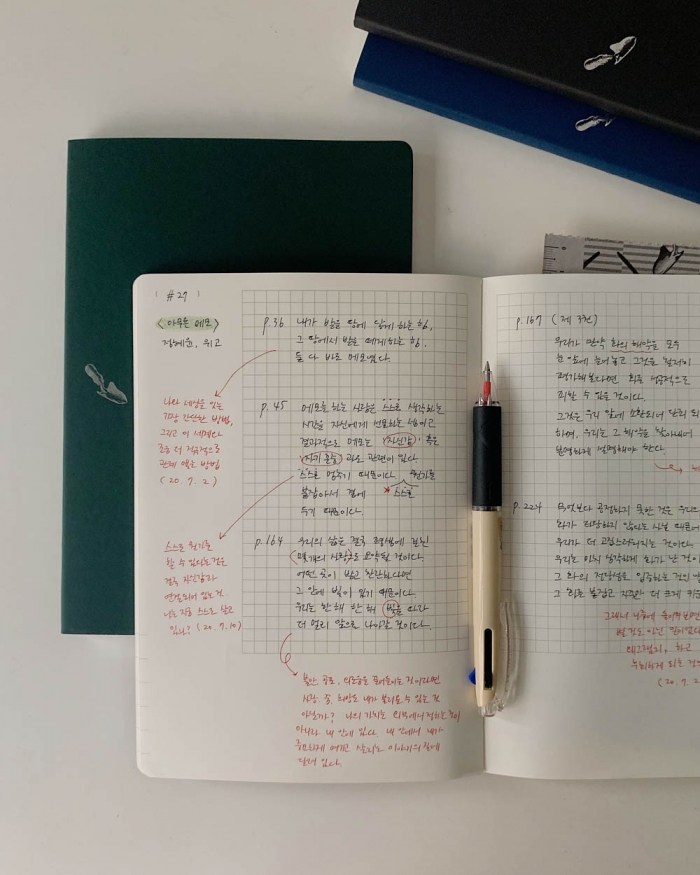 #27
<아무튼 메모>
정혜윤, 위고
p.36 내가 밤을 맘에 담게 하는 힘,
그 맘에서 밤을 떼게 하는 힘.
둘 다 바로 메모였다.
나와 세상을 잇는
가장 간단한 방법,
그리고 이 세계와
조금 더 적극적으로
관계 맺을 방법
(20. 7. 2)
p.45 메모를 하는 사람은 스스로 생각하는
시간을 자신에게 선물하는 셈이고
결과적으로 메모는 '자신감' 혹은
'자기 존중'과도 관련이 있다.
스스로 멈추기 때문이다. 뭔가를
붙잡아서 곁에
스스로
두기 때문이다.
스스로 뭔가를
할 수 있다는 것은
결국 자신감과
연결되어 있는 것.
나는 지금 스스로 살고
있나? (20. 7. 10)
p.164 우리의 삶은 결국 평생에 걸친
몇개의 사랑으로 요약될 것이다.
어떤 곳이 밝고 찬란하다면
그 안에 빛이 있기 때문이다.
우리는 한 해 한 해 빛을 따라
더 멀리 앞으로 나아갈 것이다.
불안, 공포, 외로움을 들어올리는 것이라면
사랑, 꿈, 희망도 내가 불러올 수 있는 것
아닐까? 나의 가치는 외부에서 정하는 것이
아니라 내 안에 있다. 내 안에서 내가
중요하게 여기고 살리는 이야기의 힘에
달려 있다.
p.167 (제 3권)
우리가 만약 화의 해악을 모두
한 눈에 늘어놓고 그것을
평가해 본다면 화는 성공적으로
피할 수 있을 것이다.
그것을 우리 앞에 소환되어
하며, 우리는 그 해악을 찾아내어
분명하게 설명해야 한다.
p.224 무엇보다 공정하지 못한 것은 우리
화가 타당하지 않다는 사실 때문에
우리가 더 고집스러워지는 것이다.
우리는 마치 심각하게 화가 난 것이
그 화의 정당성을 입증하는 것인
그 화를 붙잡고 직전보다 더 크게 키운
그래서 나중에 돌이켜보면
별것도 아닌 일이었다
왜그랬지, 하고
후회하게 되는 것
(20. 7. 2